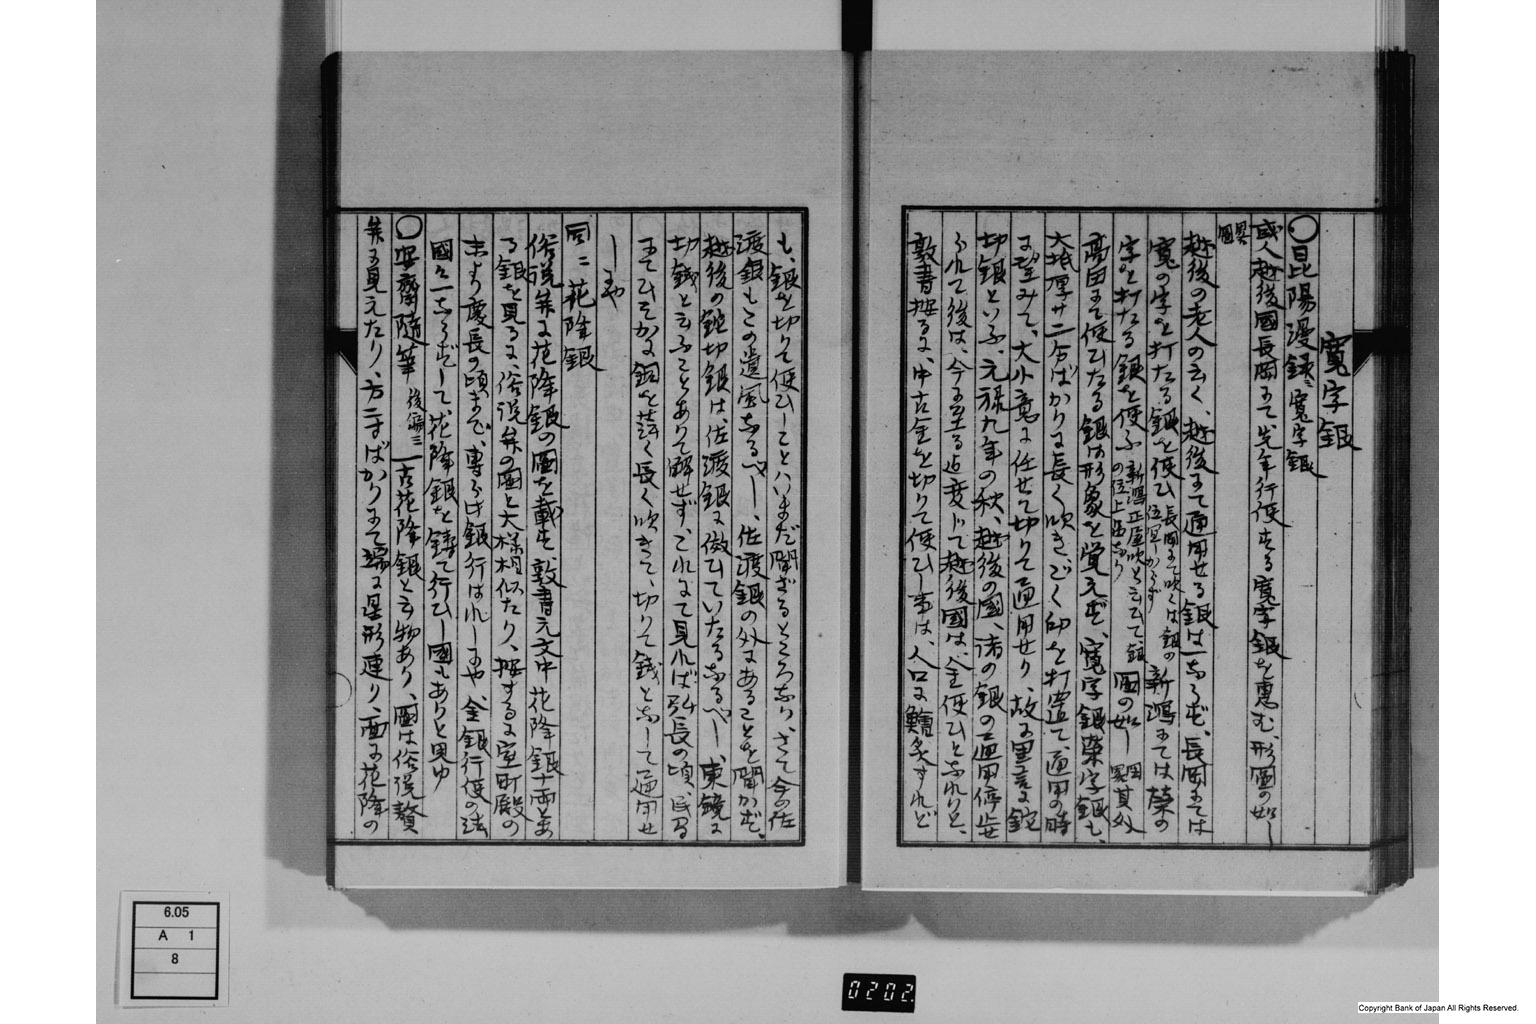 寛字銀
〇昆陽漫録ニ寛字銀
或人越後國長岡にて、先年行使する寛字銀を惠む、形圖の如し
圖畧
越後の老人の云く、越後にて通用せる銀は一ならず、長岡にては
寛の字を打たる銀を使ひ 長岡にて吹くは銀の位宜しからず 新潟にては榮の
字を打たる銀を使ふ 新潟正屋吹と云て、銀の位上品なり 圖の如し 圖畧 其外
高田にて使ひたる銀は形象を覚えず、寛字銀榮字銀も、
大抵厚サ二分ばかりに長く吹きのべ、印を打置て、通用の時
に望みて、大小意に任せて切りて通用せり、故に里言に鉈
切銀といふ、元禄九年の秋、越後の國、諸の銀の通用停止せ
られて後は、今に至る迄変じて越後國は、金使ひとなれりと、
敦書按るに、中古金を切りて使ひし事は、人口に鱠炙すれど
も、銀を切りて使ひしことハいまだ聞ざるところなり、さて今の佐
渡銀もこの遺風なるべし、佐渡銀の外にあることを聞かず、
越後の鉈切銀は、佐渡銀に傚ひていたるなるべし、東鏡に
切銭と云ふことありて解せず、これにて見れば弘長の頃、民間
にてひそかに銅を薄く長く吹きて、切りて銭となして通用せ
しにや
同ニ花降銀
俗説弁に花降銀の圖を載す、敦書元文中 花降銀十両とあ
る銀を見るに、俗説弁の圖と大様相似たり、按するに室町殿の
末より慶長の頃まで、専ら此銀行はれしにや、金銀行使の法
國々一ならずして、花降銀を鋳て行ひし國もありと見ゆ
〇安齋随筆 後編三 一古花降銀と云物あり、圖は俗説贅
弁に見えたり、方二寸ばかりにて端に星形連り、面に花降の
6.05
A 1
8
0202
Copyright Bank of Japan All Rights Reserved.